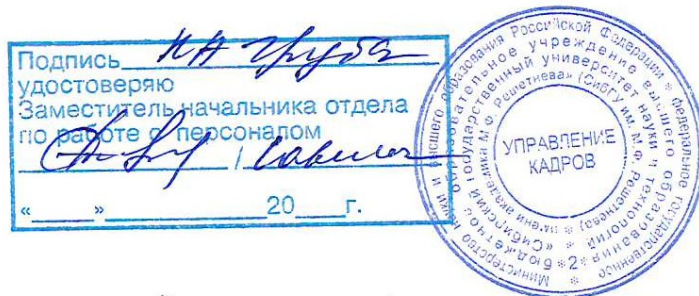 Подпись
удостоверяю
Заместитель начальника отдела
по работе с персоналом
« » 20 г.
Министерство науки и высшего образования Российской Федерации * федеральное государственное
бюджетное образовательное учреждение высшего образования *2*
«Сибирский государственный университет науки и технологий
имени академика М.Ф. Решетнева» (СибГУ им. М.Ф. Решетнева)
УПРАВЛЕНИЕ
КАДРОВ